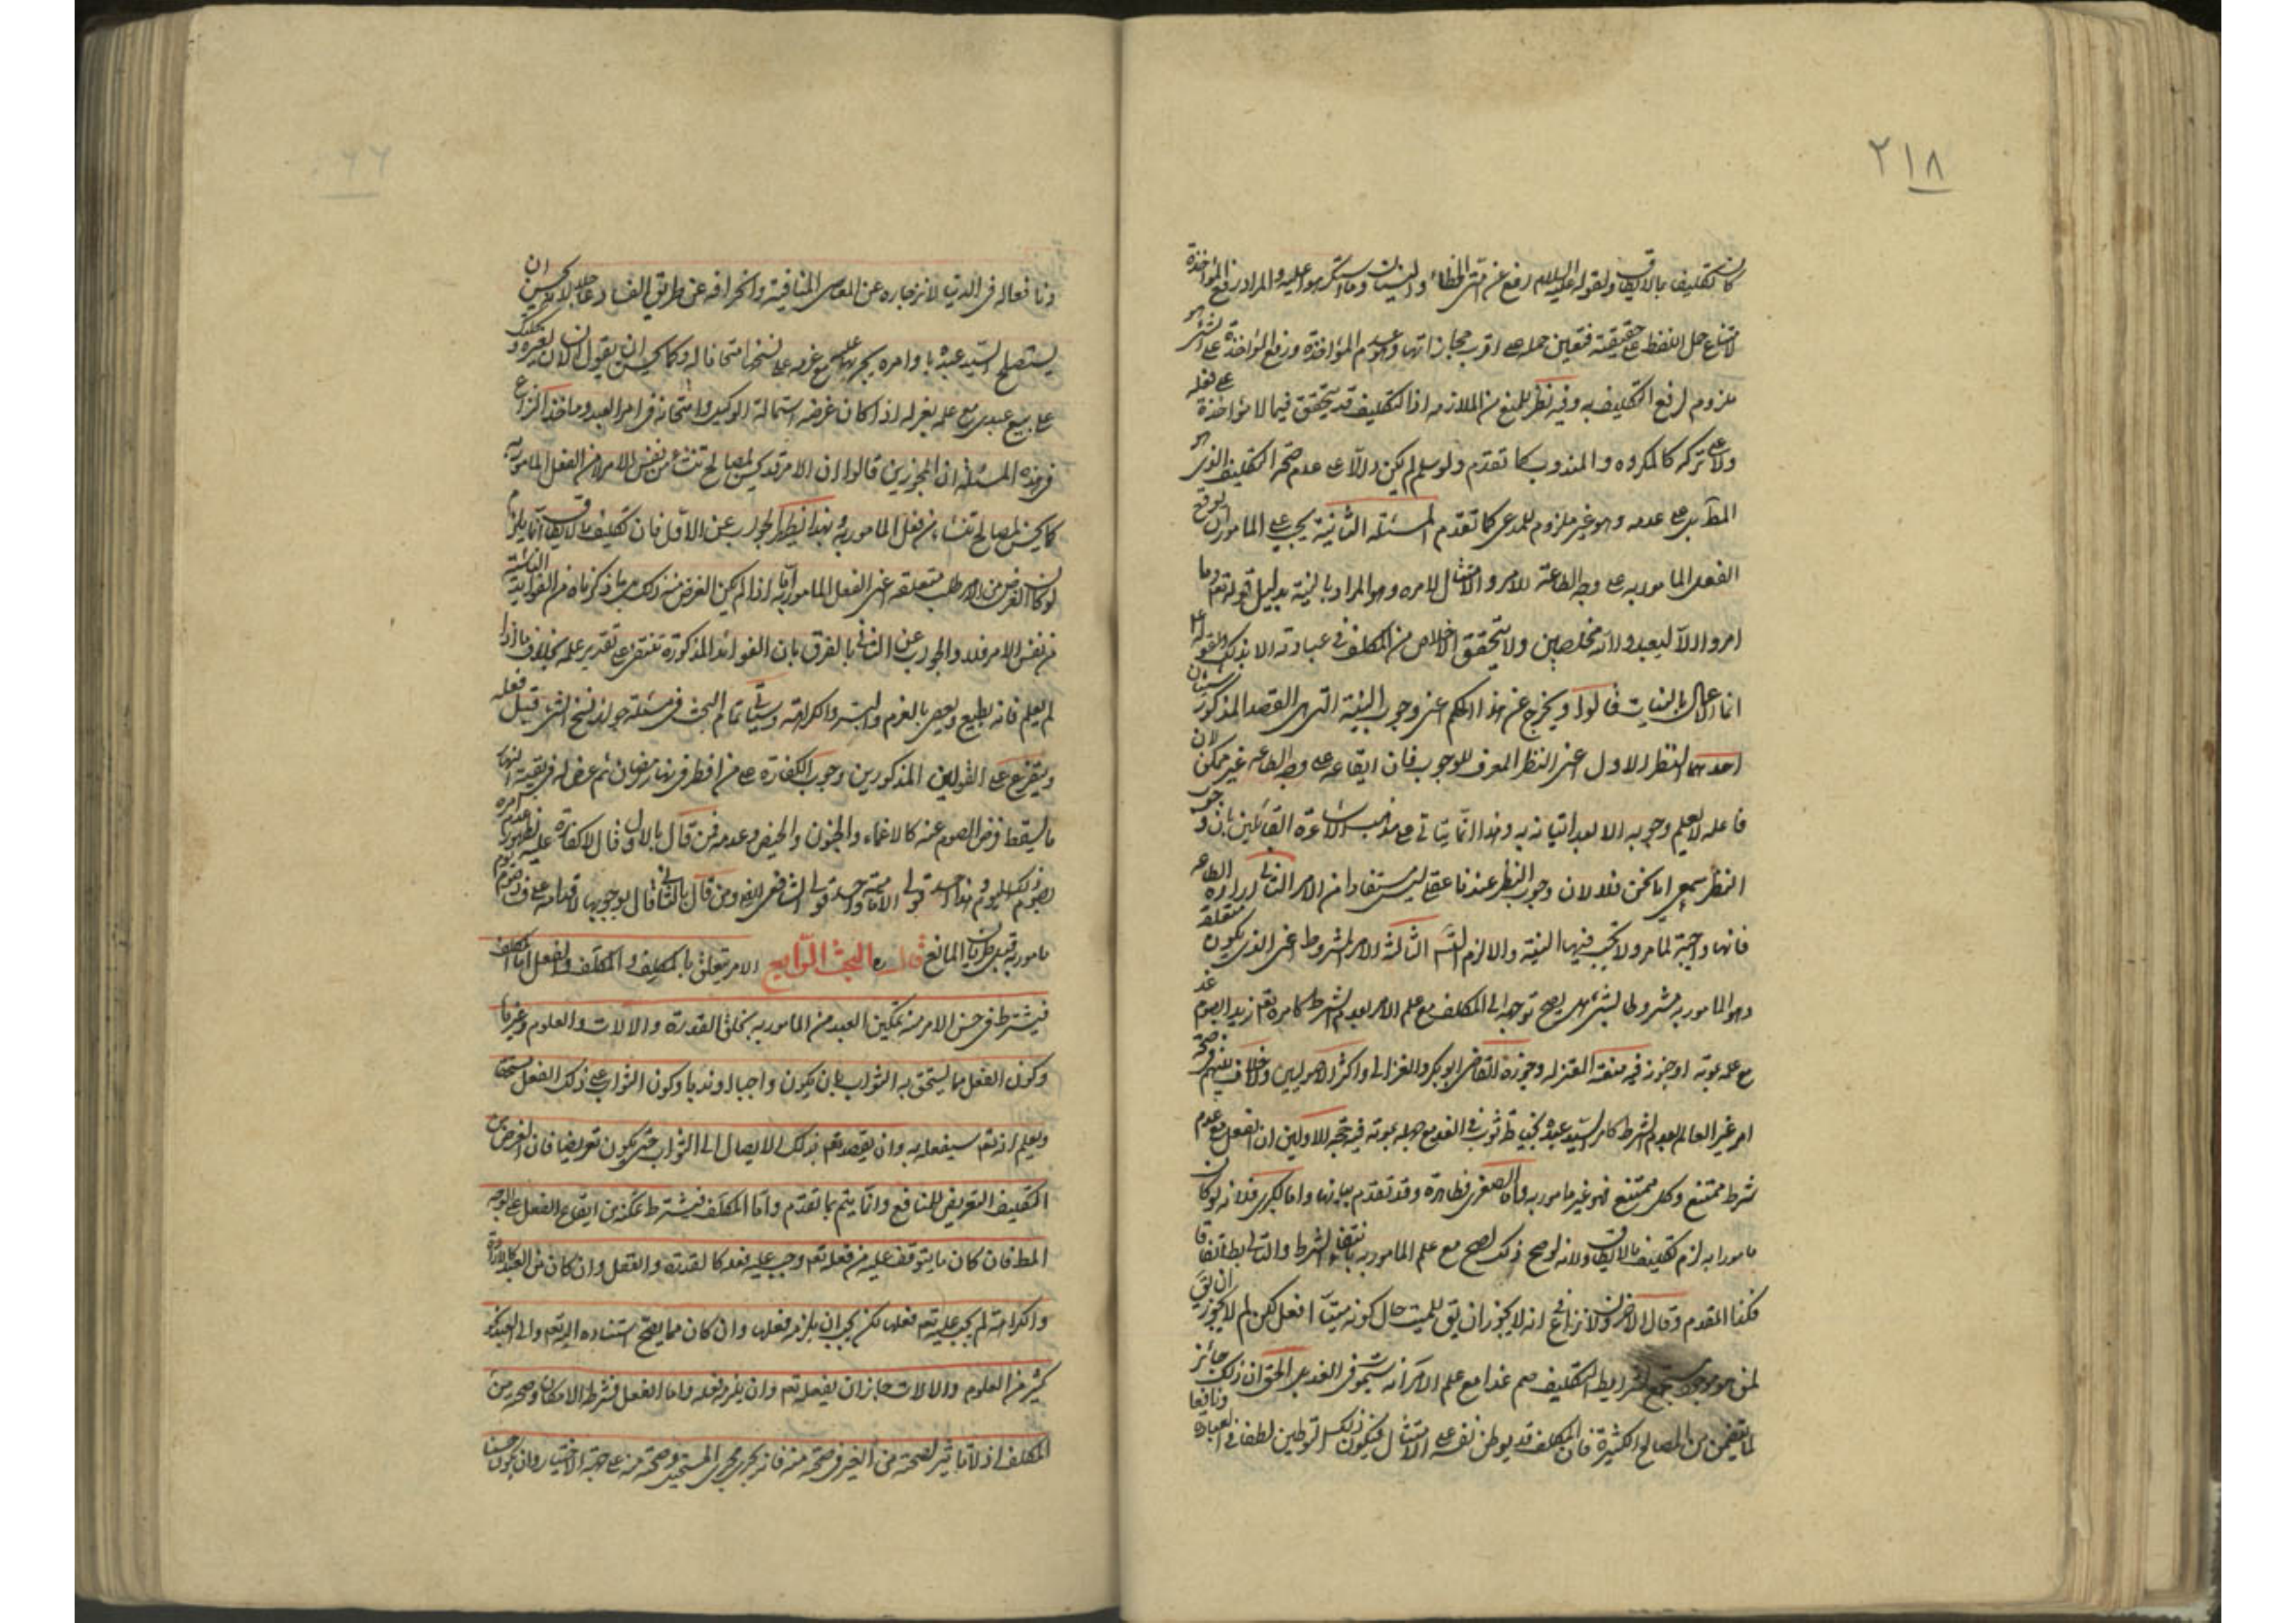 ٢١٨
كان تكليف بما لا يطاق ولقوله عليه السلام رفع عن امتى الخطاء والنسيان وما استكرهوا عليه والمراد رفع المؤاخذة
لامتناع حمل اللفظ على حقيقته فتعين حمله على اقرب مجازاتها وهو عدم المؤاخذة ورفع المؤاخذة على الشئ
ملزوم لرفع التكليف به وفيه نظر للمنع من الملازمه اذا التكليف قد يتحقق فيما لا مؤاخذة على فعله
ولا على تركه كالمكروه والمندوب كما تقدم ولو سلم لم يكن دالا على عدم صحة التكليف الذى هو
المط بل على عدمه وهو غير ملزوم للمدعى كما تقدم المسئلة الثانية يجب على المامور ان يوقع
الفعل المامور به على وجه الطاعة للامر والامتثال لامره وهو المراد بالنية بدليل قوله تعم وما
امروا الا ليعبدوا الله مخلصين ولا يتحقق الاخلاص من المكلف فى عبادته الا بذلك ولقوله ع
انما الاعمال بالنيات قالوا ويخرج عن هذا الحكم اعنى وجوب النية التى هى القصد المذكور شيئان
احدهما النظر الاول اعنى النظر المعرف للوجوب فان ايقاعه على وجه الطاعه غير ممكن لان
فاعله لا يعلم وجوبه الا بعد اتيانه به وهذا انما يتاتى على مذهب الاشاعرة القائلين بان وجوب
النظر سمعى اما نحن فلا لان وجوب النظر عندنا عقلى ليس مستفادا من الامر الثانى ارادة الطاعه
فانها واجبة لمامر ولا يجب فيها النية والا لزم التس الثالثة الامر المشروط اعنى الذى يكون متعلقه
وهو المامور به مشروطا بشئ هل يصح توجهه الى المكلف مع علم الامر بعدم الشرط كامره تعم زيدا بصوم غد
مع علمه بموته او جنونه فيه منعته المعتزله وجوزه القاضى ابو بكر والغزالى واكثر الاصوليين ولا خلاف بينهم فى صحة
امر غير العالم بعدم الشرط كامر السيد عبده بخياطة ثوب فى الغد مع جهله بموته فيه حجة الاولين ان الفعل مع عدم
شرطه ممتنع وكل ممتنع فهو غير مامور به واما الصغرى فظاهرة وقد تقدم بيانها واما الكبرى فلانه لو كان
مامورا به لزم تكليف ما لا يطاق ولانه لو صح ذلك لصح مع علم المامور به بانتفاء الشرط والتالى بط اتفاقا
فكذا المقدم وقال الاخرون ولا نزاع فى انه لا يجوز ان يق للميت حال كونه ميتا افعل لكن لم لا يجوز ان يق
لمن هو موجود مستجمع لشرايط التكليف صم غدا مع علم الامر انه سيموت فى الغد بل الحق ان ذلك جائز
لما يتضمن من المصالح الكثيرة فان المكلف قد يوطن نفسه على الامتثال فيكون ذلك التوطين لطفا فى العبادة ونافعا
ونا فعاله فى الدنيا لانزجاره عن المعاصى المنافية وانحرافه عن طريق الفساد ولانه يحسن ان
يستصلح السيد عبده باوامره يجربه بها مع عزمه على نسخها امتحانا له وكما يحسن ان يقول الانسان لغيره وكلتك
على بيع عبدى مع علمه بعزله اذا كان غرضه استمالة الوكيل وامتحانه فى امر العبد وماخذ النزاع
فى هذه المسئلة ان المجوزين قالوا ان الامر قد يحسن لمصالح تنشأ من نفس الامر لا من الفعل المامور به
كما يحسن لمصالح تنشاء من فعل المامور به وبهذا يظهر الجواب عن الاول فان تكليف ما لا يطاق انما يلزم
لو كان الغرض من الامر طلب متعلقه اعنى الفعل المامور به اما اذا لم يكن الغرض منه ذلك بل ما ذكرناه من الفوايد الناشئة
من نفس الامر فلا والجواب عن الثانى بالفرق بان الفوائد المذكورة تنتفى على تقدير علمه بخلاف ما اذا
لم يعلم فانه يطيع ويعصى بالعزم والبشر والكراهة وسيأتى تمام البحث فى مسئلة جواز نسخ الشئ قبل فعله
ويتفرع على القولين المذكورين وجوب الكفارة على من افطر فى نهار رمضان ثم عرض له فى بقية النهار
ما يسقط فرض الصوم عنه كالاغماء والجنون والحيض وعدمه فمن قال بالاول قال لا كفارة عليه لظهور عدم امره
بصوم ذلك اليوم وهذا احد قولى الامامية واحد قولى الشافعى ايضا ومن قال بالثانى قال بوجوبها لاقدامه على افساد صوم يوم
مامور به قبل طريان المانع قال ره البحث الرابع الامر يتعلق بالمكلِف والمكلَف والفعل اما المكلف
فيشترط فى حسن الامر منه تمكين العبد من المامور به بخلق القدرة والالات والعلوم وغيرها
وكون الفعل مما يستحق به الثواب بان يكون واجبا او ندبا وكون الثواب على ذلك الفعل مستحقا
ويعلم انه تعم سيفعله به وان يقصد تعم بذلك الايصال الى الثواب حتى يكون تعويضا فان الغرض من
التكليف التعريض للمنافع وانما يتم بما تقدم واما المكلف فيشترط تمكنه من ايقاع الفعل على الوجه
المط فان كان ما يتوقف عليه من فعله تعم وجب عليه فعله كالقدرة والعقل وان كان من العبد كالارادة
والكراهة لم يجب عليه تعم فعلها لكن يجب ان يلزم فعلها وان كان مما يصح استناده اليه تعم والى العبد كـ
كثير من العلوم والالات جاز ان يفعله تعم وان يلزم فعله واما الفعل فشرطه الامكان وصحته من
المكلف اذ لا تاثير لصحته من الغير فى صحته منه فانه يجرى مجرى المستحيل وصحته منه على جهة الاختيار وان يكون حسنا